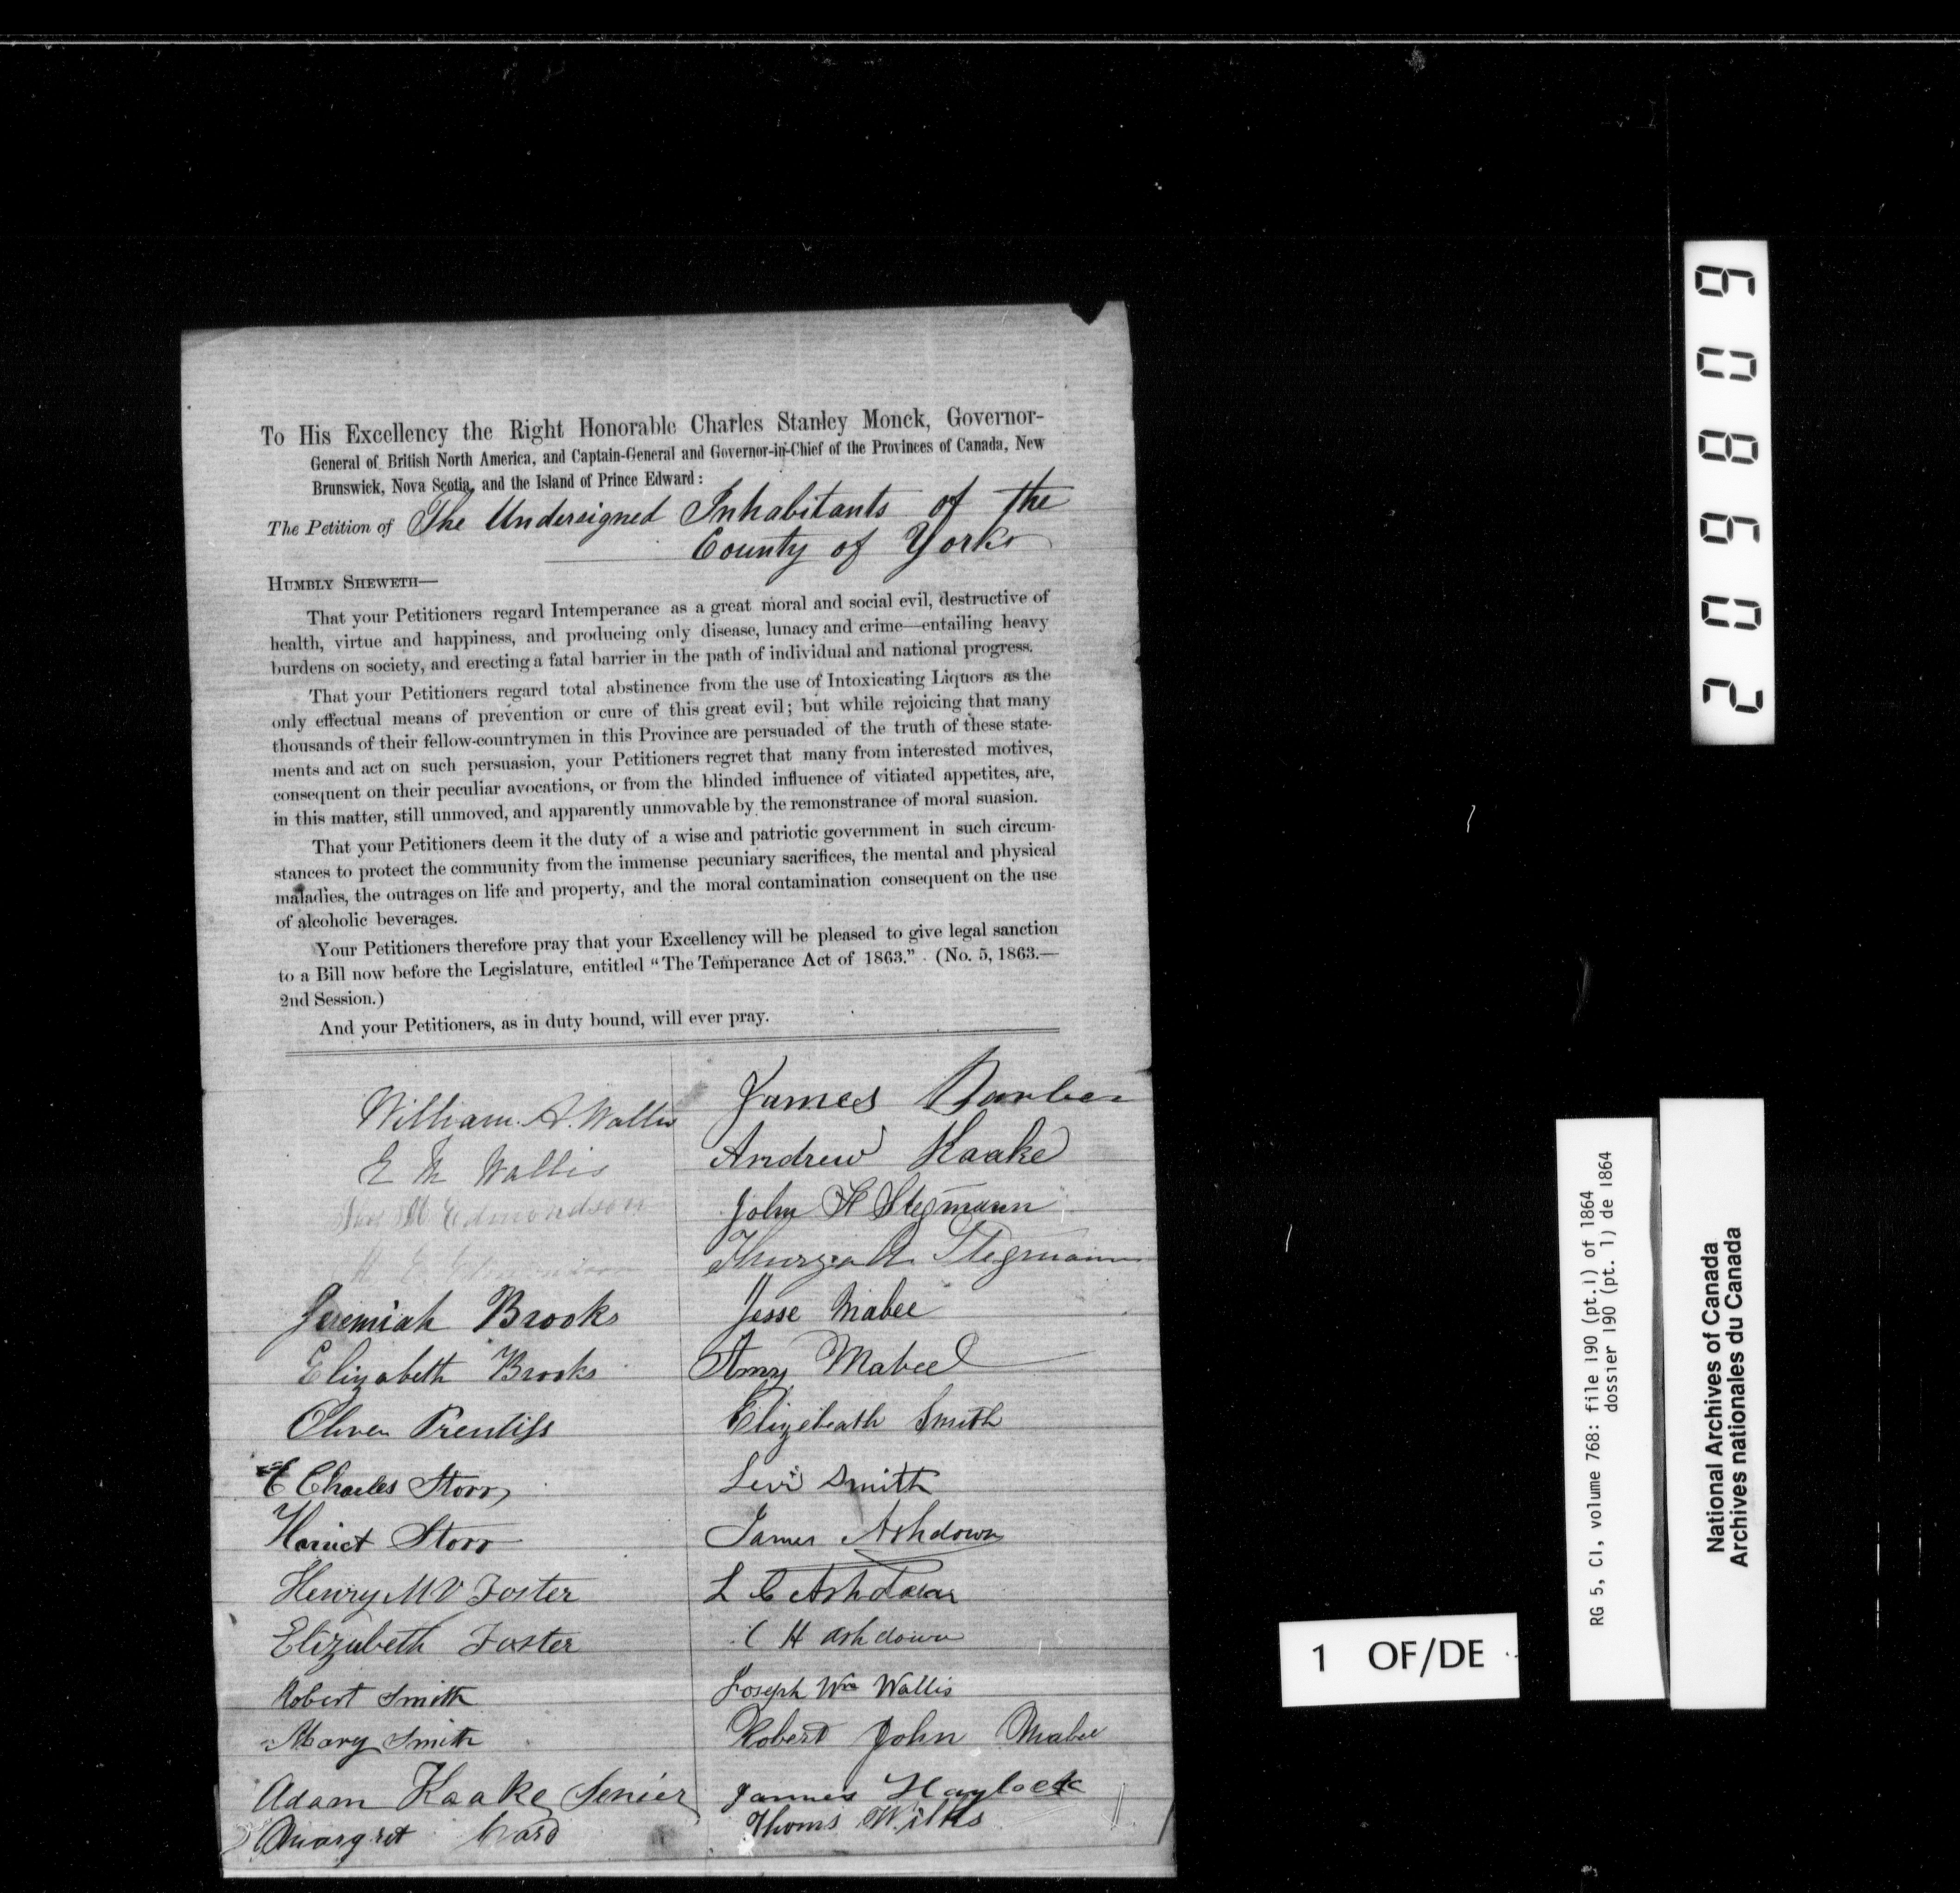 To His Excellency the Right Honorable Charles Stanley Monck, Governor-
General of British North America, and Captain-General and Governor-in-Chief of the Provinces of Canada, New
Brunswick, Nova Scotia, and the Island of Prince Edward:
The Petition of The Undersigned Inhabitants of the
County of York
HUMBLY SHEWETH—
That your Petitioners regard Intemperance as a great moral and social evil, destructive of
health, virtue and happiness, and producing only disease, lunacy and crime—entailing heavy
burdens on society, and erecting a fatal barrier in the path of individual and national progress.
That your Petitioners regard total abstinence from the use of Intoxicating Liquors as the
only effectual means of prevention or cure of this great evil; but while rejoicing that many
thousands of their fellow-countrymen in this Province are persuaded of the truth of these state-
ments and act on such persuasion, your Petitioners regret that many from interested motives,
consequent on their peculiar avocations, or from the blinded influence of vitiated appetites, are,
in this matter, still unmoved, and apparently unmovable by the remonstrance of moral suasion.
That your Petitioners deem it the duty of a wise and patriotic government in such circum-
stances to protect the community from the immense pecuniary sacrifices, the mental and physical
maladies, the outrages on life and property, and the moral contamination consequent on the use
of alcoholic beverages.
Your Petitioners therefore pray that your Excellency will be pleased to give legal sanction
to a Bill now before the Legislature, entitled "The Temperance Act of 1863." (No. 5, 1863.—
2nd Session.)
And your Petitioners, as in duty bound, will ever pray.
William. A. Wallis
E M Wallis
Edmondson
Jeremiah Brooks
Elizabeth Brooks
Oliver Prentiss
C Charles Storr
Harriet Storr
Henry M V Foster
Elizabeth Foster
Robert Smith
Mary Smith
Adam Kaake Senier
Margret Ward
James Barber
Andrew Kaake
John H Stegmann
Stegmann
Jesse Mabee
Amy Mabee
Elizebeath Smith
Levi Smith
James Ashdown
L C Ashdown
C H ashdown
Joseph Wm Wallis
Robert John Mabee
James Haylock
Thoms Wilks
2 0 6 8 0 9
1 OF/DE
RG 5, C1, volume 768: file 190 (pt.1) of 1864
dossier 190 (pt. 1) de 1864
National Archives of Canada
Archives nationales du Canada